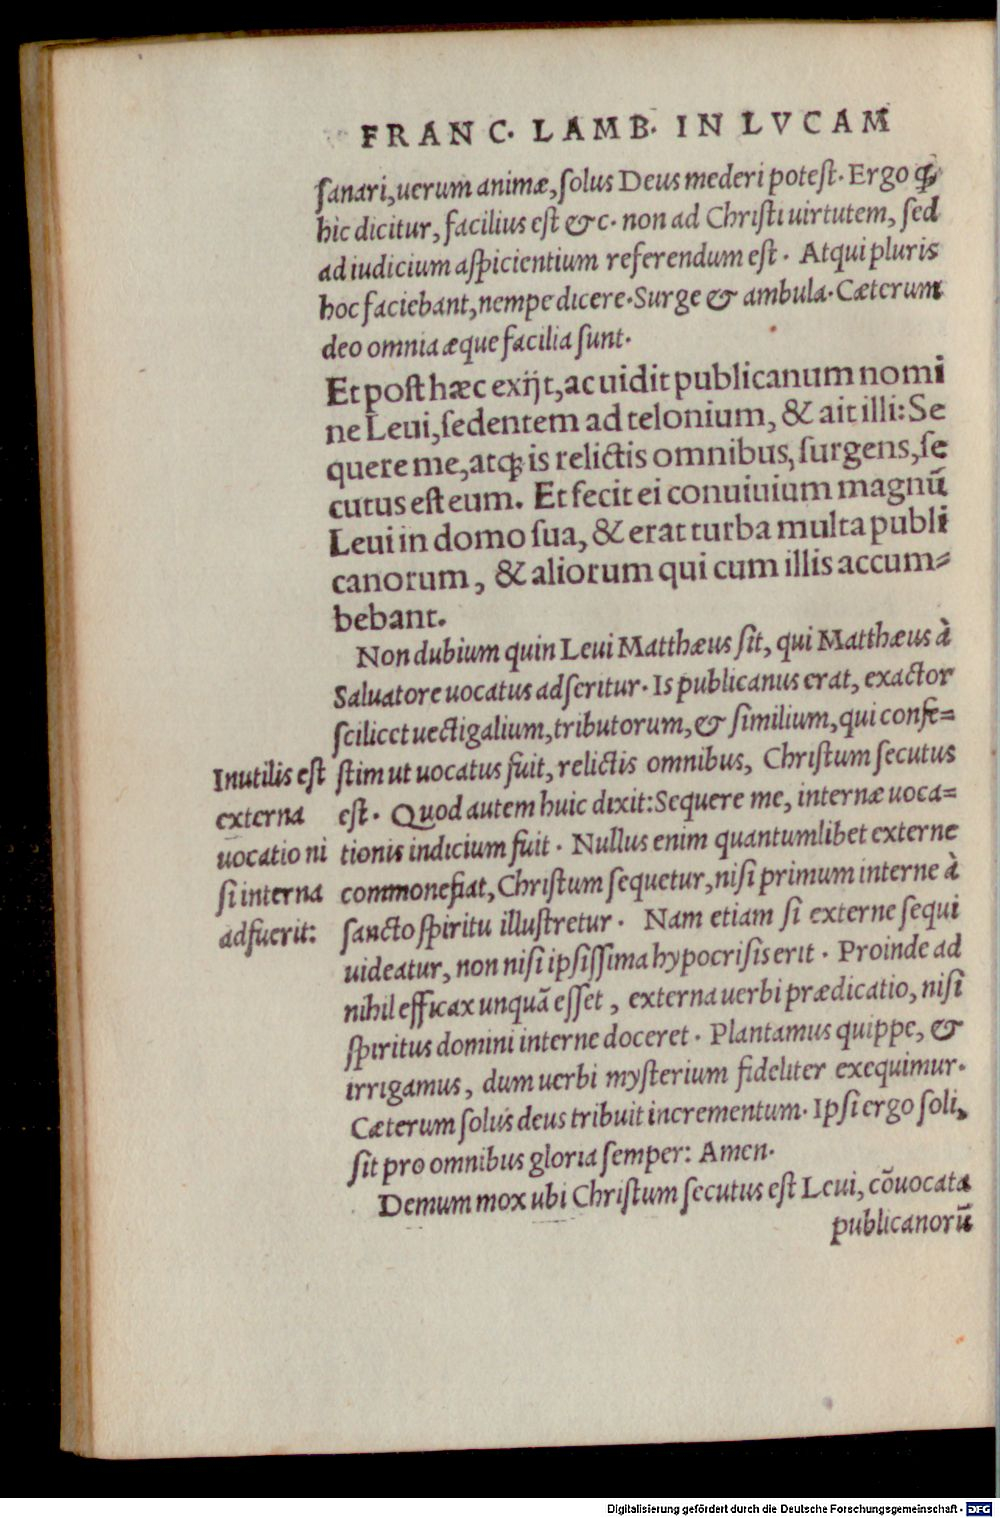 FRANC. LAMB. IN LVCAM
ſanari, uerum animæ, ſolus Deus mederi poteſt. Ergo ꝙ
hic dicitur, facilius eſt &c. non ad Chriſti uirtutem, ſed
ad iudicium aſpicientium referendum eſt. Atqui pluris
hoc faciebant, nempe dicere. Surge & ambula. Cæterum
deo omnia æque facilia ſunt.
Et poſt hæc exijt, ac uidit publicanum nomi
ne Leui, ſedentem ad telonium, & ait illi: Se
quere me, atqꝫ is relictis omnibus, ſurgens, ſe
cutus eſt eum. Et fecit ei conuiuium magnū
Leui in domo ſua, & erat turba multa publi
canorum, & aliorum qui cum illis accum-
bebant.
Non dubium quin Leui Matthæus ſit, qui Matthæus à
Saluatore uocatus adſeritur. Is publicanus erat, exactor
ſcilicet uectigalium, tributorum, & ſimilium, qui confe-
ſtim ut uocatus fuit, relictis omnibus, Chriſtum ſecutus
eſt. Quod autem huic dixit: Sequere me, internæ uoca-
tionis indicium fuit. Nullus enim quantumlibet externe
commonefiat, Chriſtum ſequetur, niſi primum interne à
ſancto ſpiritu illuſtretur. Nam etiam ſi externe ſequi
uideatur, non niſi ipſiſſima hypocriſis erit. Proinde ad
nihil efficax unquā eſſet, externa uerbi prædicatio, niſi
ſpiritus domini interne doceret. Plantamus quippe, &
irrigamus, dum uerbi myſterium fideliter exequimur.
Cæterum ſolus deus tribuit incrementum. Ipſi ergo ſoli,
ſit pro omnibus gloria ſemper: Amen.
Demum mox ubi Chriſtum ſecutus eſt Leui, cōuocata
publicanorū
Inutilis eſt
externa
uocatio ni
ſi interna
adfuerit:
Digitalisierung gefördert durch die Deutsche Forschungsgemeinschaft - DFG